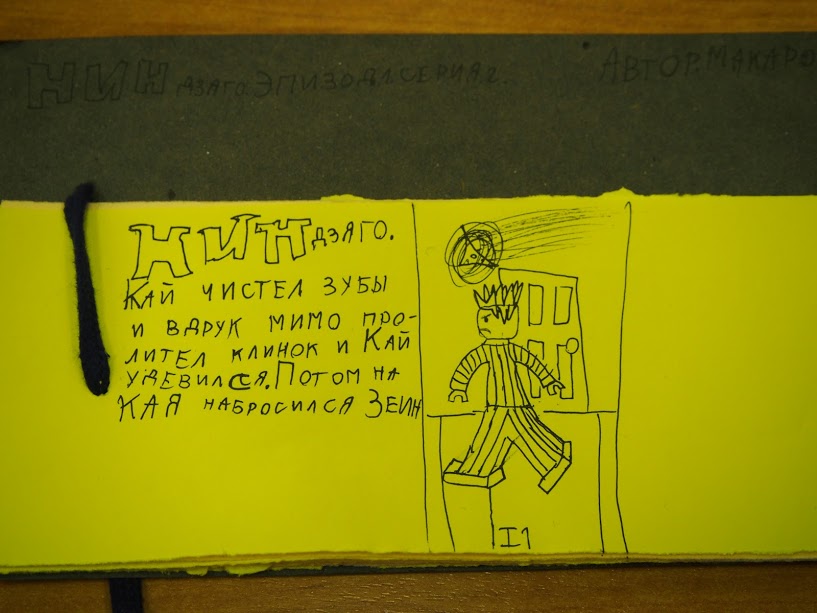 НИНДЗЯГО. ЭПИЗОД 1. СЕРИЯ 2. АВТОР. МАКАРО
НИНДЗЯГО.
КАЙ ЧИСТЕЛ ЗУБЫ
И ВДРУК МИМО ПРО-
ЛИТЕЛ КЛИНОК И КАЙ
УДЕВИЛСЯ. ПОТОМ НА
КАЯ НАБРОСИЛСЯ ЗЕИН
I1